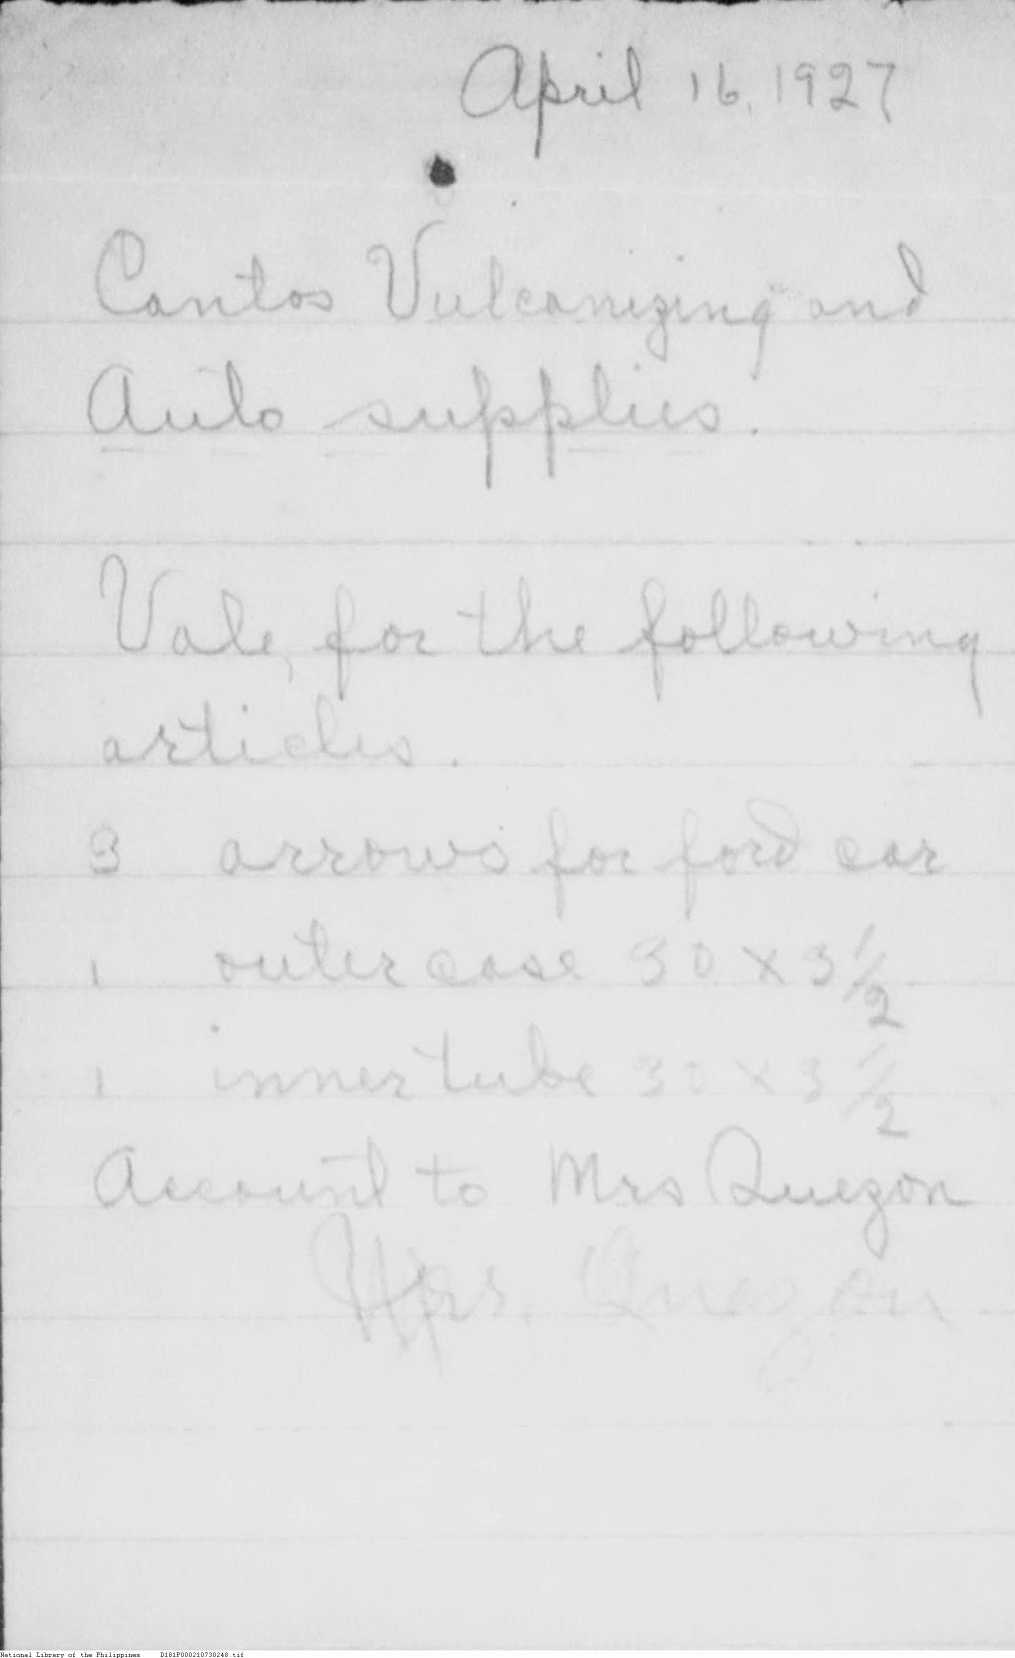 April 16, 1927
Cantos Vulcanizing and
Auto supplies.
Vale, for the following
articles.
3 arrows for ford car
1 outer case 30 x 3 1/2
1 inner tube 30 x 3 1/2
Account to Mrs Quezon
Mrs. Quezon
National Library of the Philippines D181P000210730248.tif